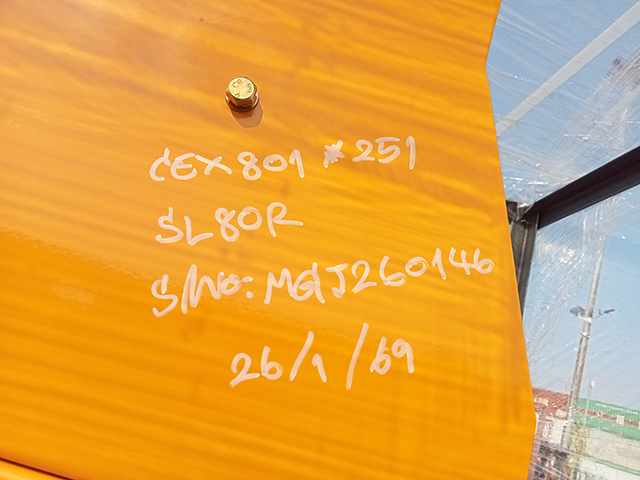 CEX801 *251
SL80R
S/No: MGJ260146
26/1/69